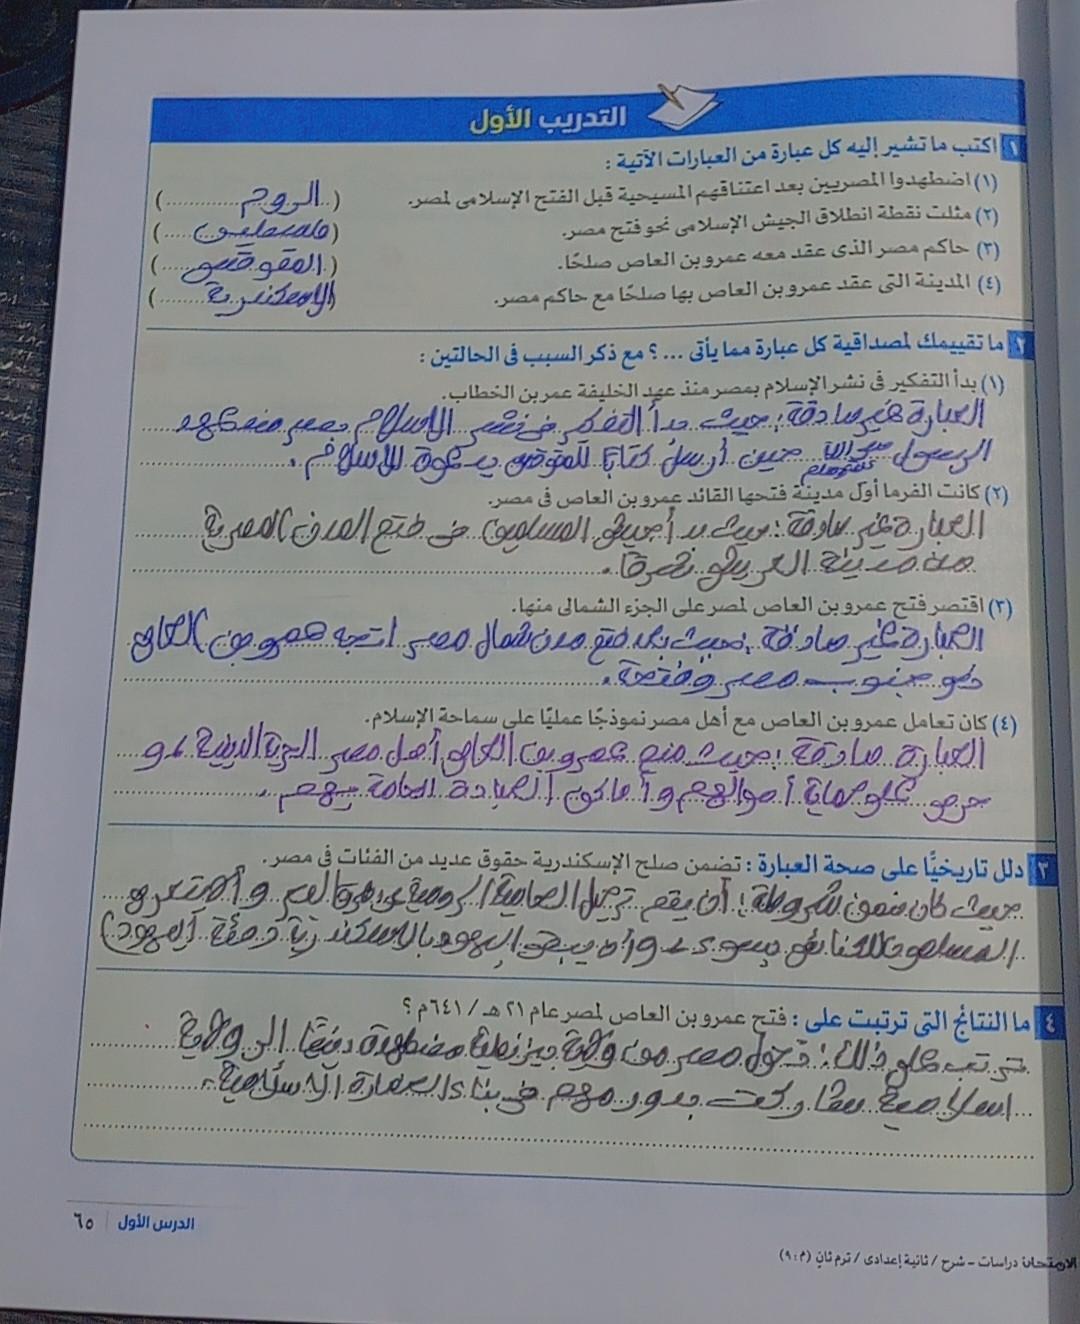 التدريب الأول
١ اكتب ما تشير إليه كل عبارة من العبارات الآتية :
(١) اضطهدوا المصريين بعد اعتناقهم المسيحية قبل الفتح الإسلامى لمصر. (الروم)
(٢) مثلت نقطة انطلاق الجيش الإسلامى نحو فتح مصر. (فلسطين)
(٣) حاكم مصر الذى عقد معه عمرو بن العاص صلحًا. (المقوقس)
(٤) المدينة التى عقد عمرو بن العاص بها صلحًا مع حاكم مصر. (الإسكندرية)
٢ ما تقييمك لمصداقية كل عبارة مما يأتى ... ؟ مع ذكر السبب فى الحالتين :
(١) بدأ التفكير فى نشر الإسلام بمصر منذ عهد الخليفة عمر بن الخطاب.
العبارة غير صادقة ؛ حيث بدأ التفكير فى نشر الاسلام بمصر منذ عهد
الرسول صلى الله عليه وسلم حين أرسل كتابًا للمقوقس يدعوة للاسلام .
(٢) كانت الفرما أول مدينة فتحها القائد عمرو بن العاص فى مصر.
العبارة غير صادقة ؛ حيث بدأ جيش المسلمين فى فتح المدن المصرية
من مدينة العريش شرقًا .
(٣) اقتصر فتح عمرو بن العاص لمصر على الجزء الشمالى منها.
العبارة غير صادقة ؛ حيث بعد فتح مدن شمال مصر اتجه عمرو بن العاص
نحو جنوب مصر وفتحة .
(٤) كان تعامل عمرو بن العاص مع أهل مصر نموذجًا عمليًا على سماحة الإسلام.
العبارة صادقة ؛ حيث منح عمرو بن العاص أهل مصر الحرية الدينية
حرص على حماية أموالهم وأماكن العبادة الخاصة بهم .
٣ دلل تاريخيًّا على صحة العبارة : تضمن صلح الإسكندرية حقوق عديد من الفئات فى مصر.
حيث كان ضمن شروطة ؛ أن يتم ترحيل الحامية الرومية
المسلمون الكنائس بسوء وأن يبقى اليهود بالاسكندرية (فئة اليهود)
٤ ما النتائج التى ترتبت على : فتح عمرو بن العاص لمصر عام ٢١ هـ / ٦٤١م ؟
ترتب على ذلك ؛ تحول مصر من ولاية بيزنطية مضطهدة دينيًا الى ولاية
اسلامية شاركت بدور مهم فى بناء الحضارة الاسلامية .
الدرس الأول | ٦٥
الامتحان دراسات - شرح / ثانية إعدادى / ترم ثانٍ (م : ٩)